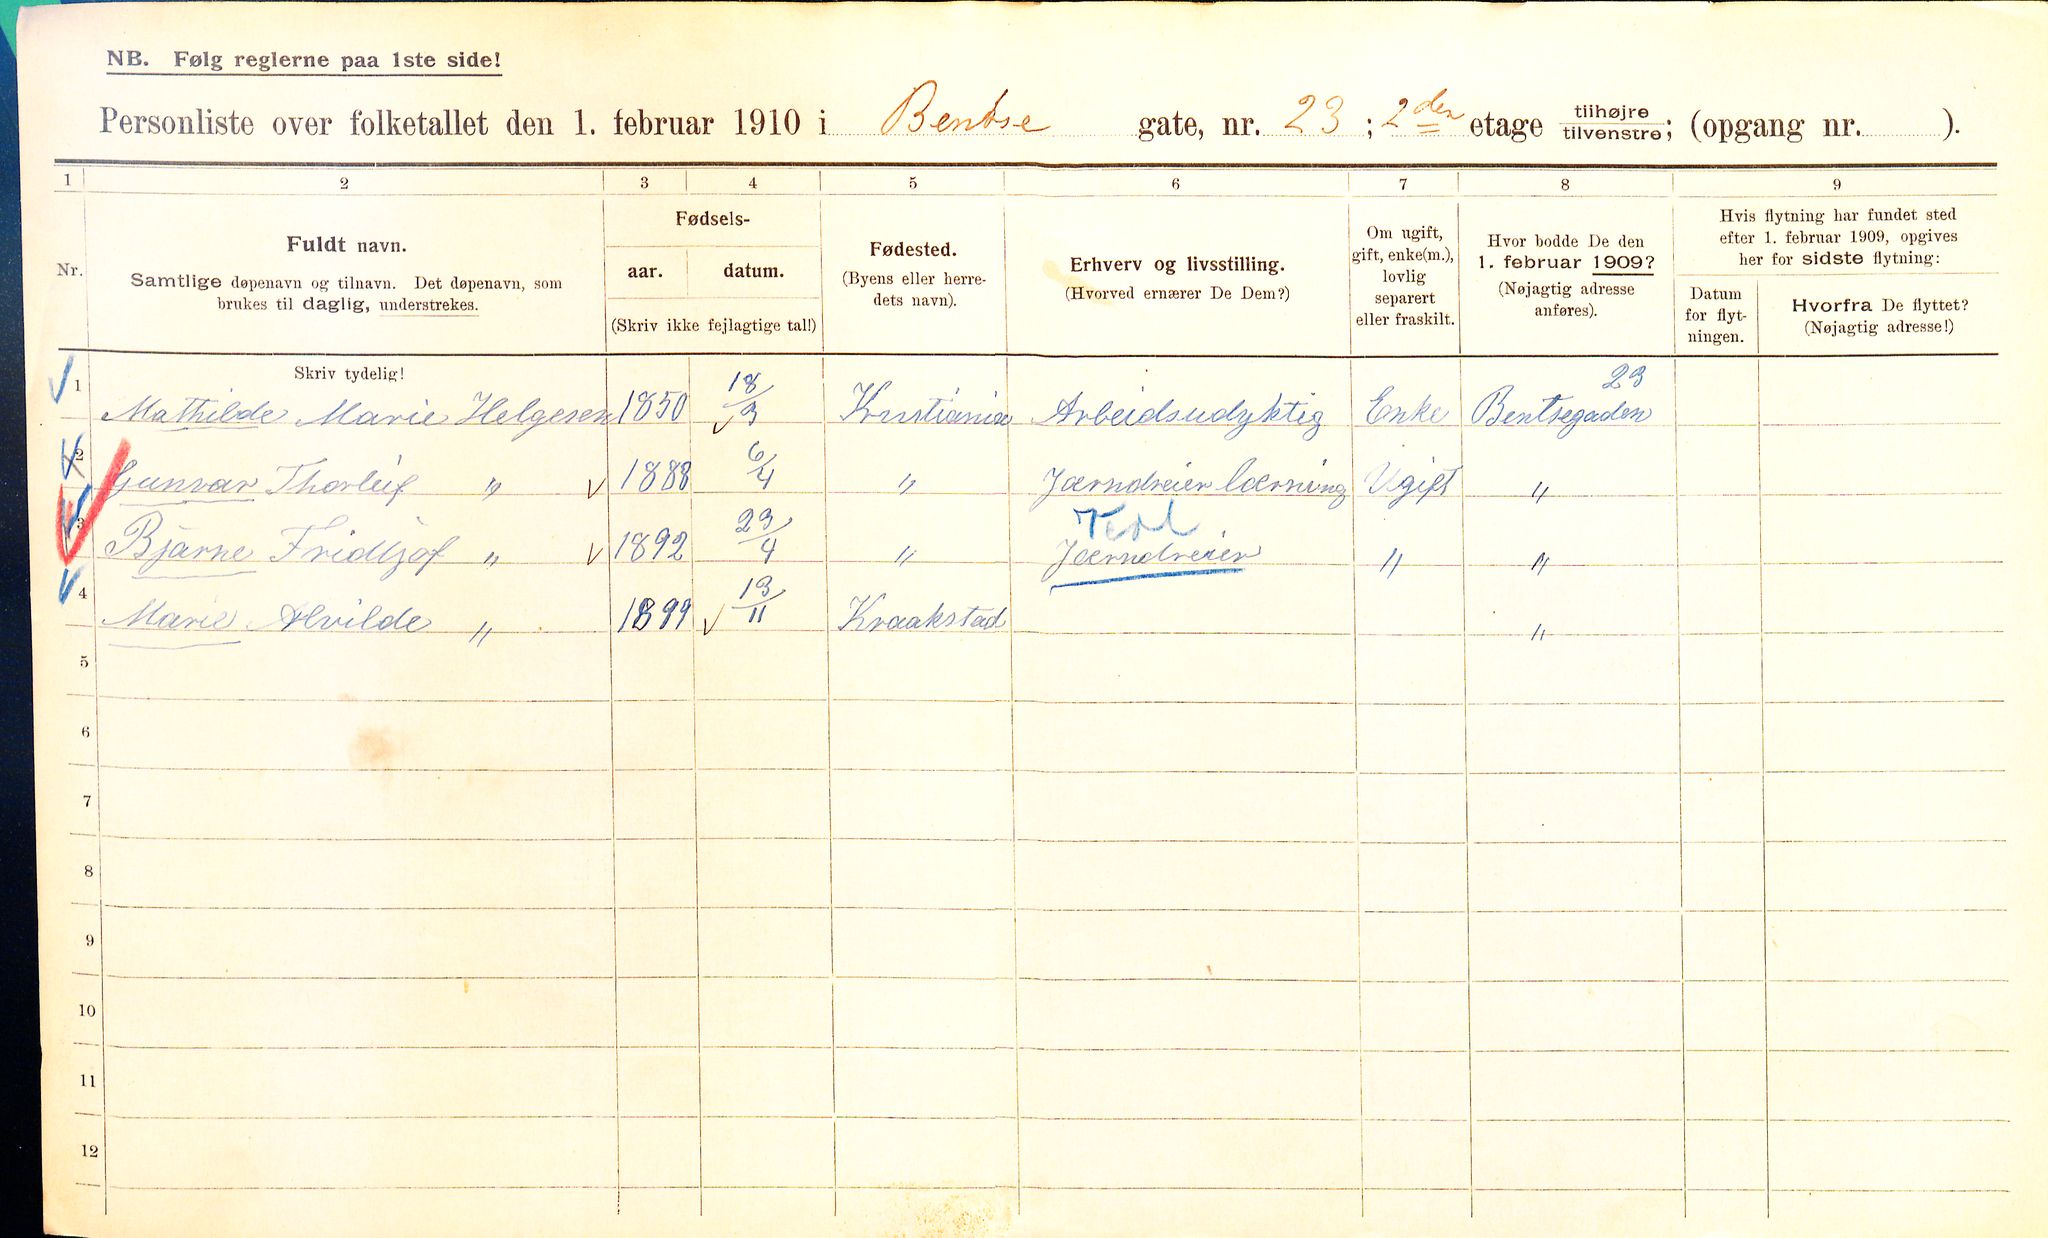 NB. Følg reglerne paa 1ste side!
Personliste over folketallet den 1. februar 1910 i Bentse gate, nr. 23; 2den etage tilhøjre/tilvenstre; (opgang nr. ).
1 2 3 4 5 6 7 8 9
Nr.
Fuldt navn.
Samtlige døpenavn og tilnavn. Det døpenavn, som
brukes til daglig, understrekes.
Fødsels-
aar. datum.
(Skriv ikke fejlagtige tal!)
Fødested.
(Byens eller herre-
dets navn).
Erhverv og livsstilling.
(Hvorved ernærer De Dem?)
Om ugift,
gift, enke(m.),
lovlig
separert
eller fraskilt.
Hvor bodde De den
1. februar 1909?
(Nøjagtig adresse
anføres).
Hvis flytning har fundet sted
efter 1. februar 1909, opgives
her for sidste flytning:
Datum
for flyt-
ningen.
Hvorfra De flyttet?
(Nøjagtig adresse!)
Skriv tydelig!
1 Mathilde Marie Helgesen 1850 18/3 Kristiania Arbeidsudyktig Enke Bentsegaden 23
2 Gunvar Thorleif " 1888 6/4 " Jærndreier lærning Ugift "
3 Bjarne Fridtjof " 1892 23/4 " Jærndreier " "
4 Marie Alvilde " 1899 13/11 Kraakstad "
5
6
7
8
9
10
11
12